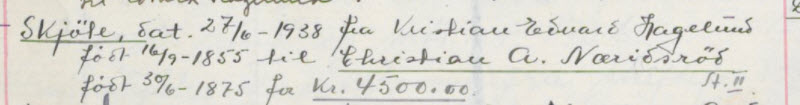 Skjöte, dat. 27/6-1938 fra Kristian Edvard Hagelund
födt 16/9-1855 til Christian A. Næridsröd
födt 30/6-1875 for Kr. 4500.00. st. II